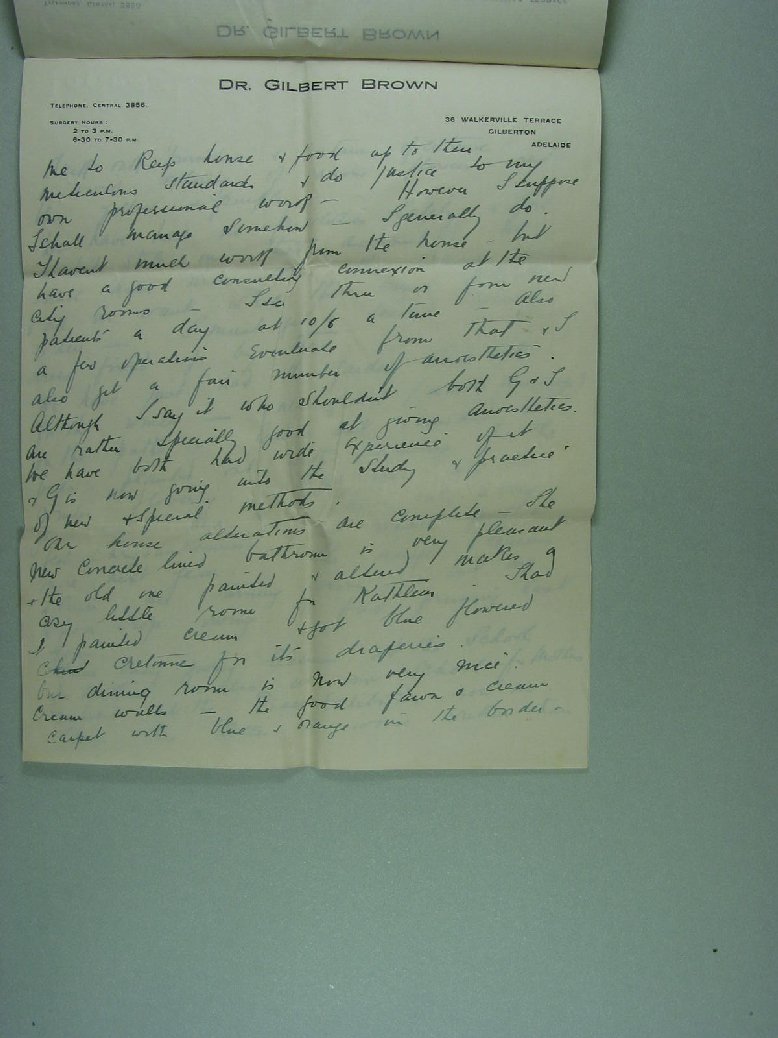 DR. GILBERT BROWN
TELEPHONE, CENTRAL 3966.
SURGERY HOURS:
2 TO 3 P.M.
6-30 TO 7-30 P.M.
36 WALKERVILLE TERRACE
GILBERTON
ADELAIDE
me to keep house & food up to their
meticulous standards & do justice to my
own professional work — However I suppose
I shall manage somehow — I generally do.
I havent much work from the house — but
have a good consulting connexion at the
city rooms — I see three or four new
patients a day at 10/6 a time — also
a few operations eventuate from that — & I
also get a fair number of anaesthetics.
Although I say it who shouldnt both G & I
are rather specially good at giving anaesthetics.
We have both had wide experience of it
& G is now going into the study & practice
of new & special methods.
Our house alterations are complete — the
new concrete lined bathroom is very pleasant
& the old one painted & altered makes a
cosy little room for Kathleen. I had
it painted cream & got blue flowered
cretonne for its draperies.
Our dining room is now very nice.
Cream walls — the good fawn & cream
carpet with blue & orange in the border —